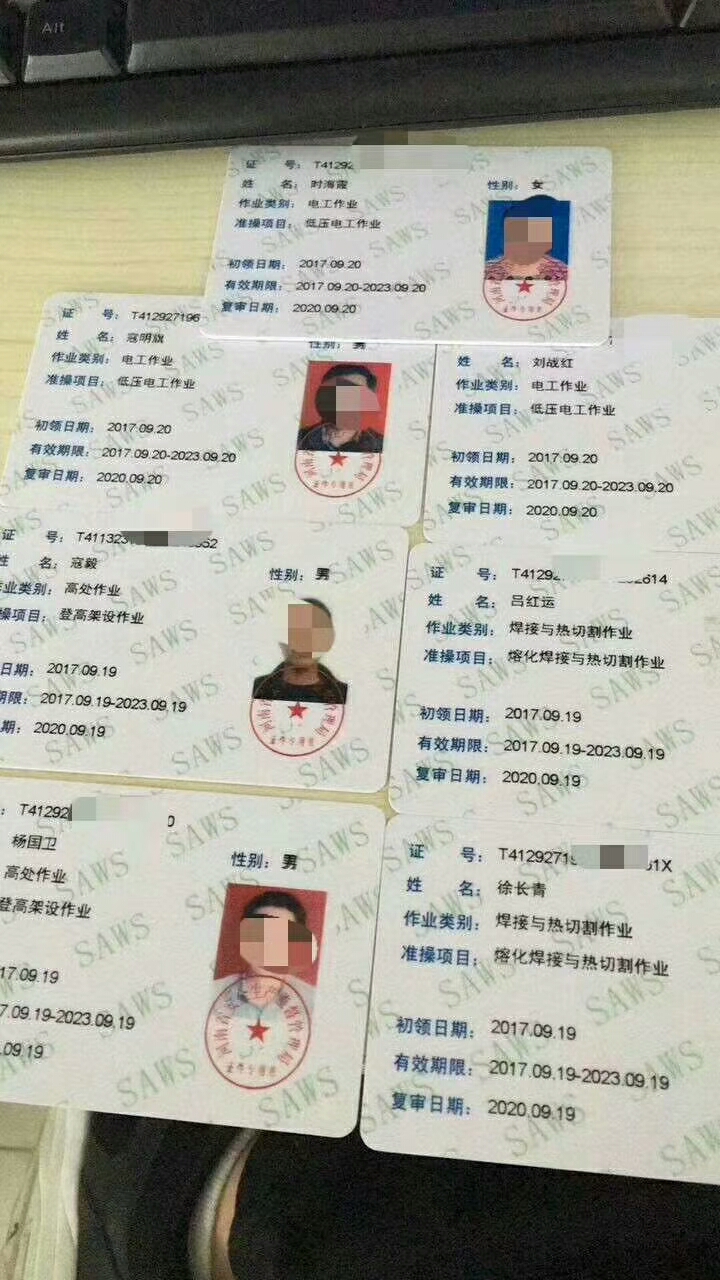 Alt
证 号： T41292
姓 名： 时海霞 性别： 女
作业类别： 电工作业
准操项目： 低压电工作业
初领日期： 2017.09.20
有效期限： 2017.09.20-2023.09.20
复审日期： 2020.09.20
证 号： T412927196
姓 名： 寇明旗 性别： 男
作业类别： 电工作业
准操项目： 低压电工作业
初领日期： 2017.09.20
有效期限： 2017.09.20-2023.09.20
复审日期： 2020.09.20
姓 名： 刘战红
作业类别： 电工作业
准操项目： 低压电工作业
初领日期： 2017.09.20
有效期限： 2017.09.20-2023.09.20
复审日期： 2020.09.20
证 号： T411323
姓 名： 寇毅 性别： 男
作业类别： 高处作业
操项目： 登高架设作业
日期： 2017.09.19
期限： 2017.09.19-2023.09.19
期： 2020.09.19
证 号： T4129 2614
姓 名： 吕红运
作业类别： 焊接与热切割作业
准操项目： 熔化焊接与热切割作业
初领日期： 2017.09.19
有效期限： 2017.09.19-2023.09.19
复审日期： 2020.09.19
： T41292 0
杨国卫 性别： 男
高处作业
登高架设作业
17.09.19
7.09.19-2023.09.19
.09.19
证 号： T4129271 1X
姓 名： 徐长青
作业类别： 焊接与热切割作业
准操项目： 熔化焊接与热切割作业
初领日期： 2017.09.19
有效期限： 2017.09.19-2023.09.19
复审日期： 2020.09.19
SAWS